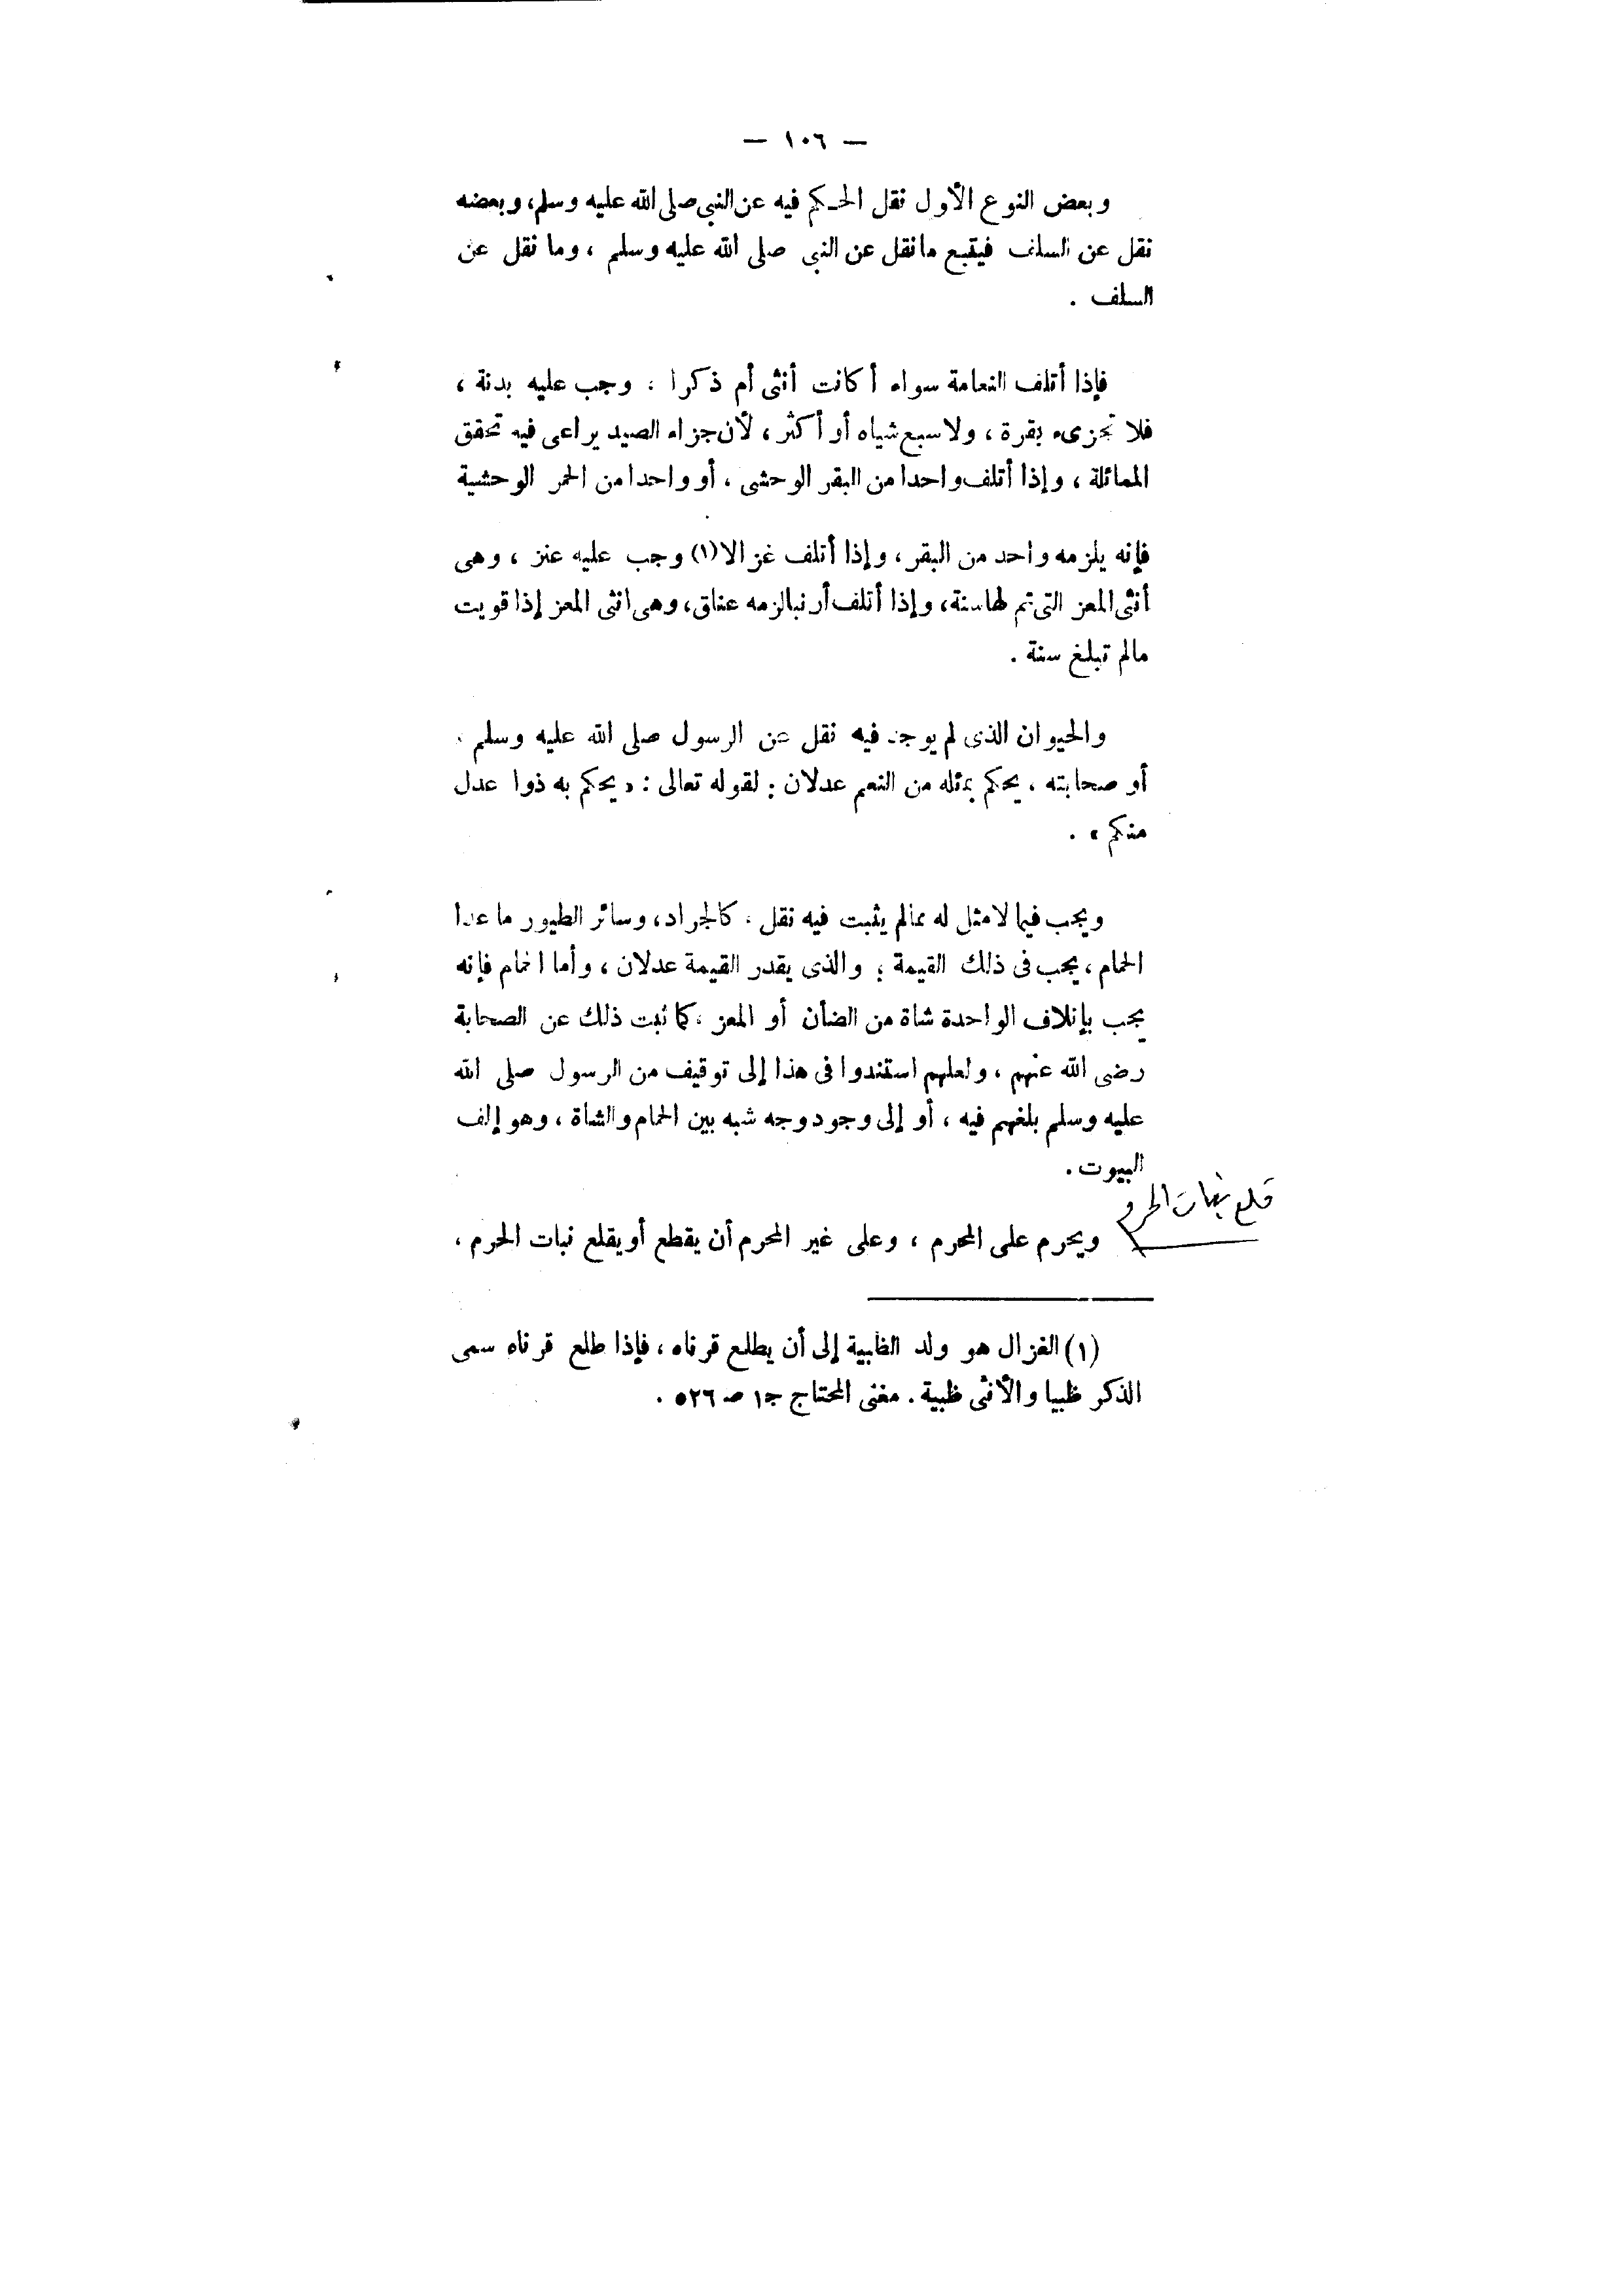 — ١٠٦ —
وبعض النوع الأول نقل الحكم فيه عن النبي صلى الله عليه وسلم، وبعضه
نقل عن السلف فيتبع ما نقل عن النبى صلى الله عليه وسلم ، وما نقل عن
السلف .
فإذا أتلف النعامة سواء أكانت أنثى أم ذكرا ، وجب عليه بدنة ،
فلا تجزىء بقرة ، ولا سبع شياه أو أكثر ، لأن جزاء الصيد يراعى فيه تحقق
المماثلة ، وإذا أتلف واحدا من البقر الوحشى ، أو واحدا من الحمر الوحشية
فإنه يلزمه واحد من البقر ، وإذا أتلف غزالا (١) وجب عليه عنز ، وهى
أنثى المعز التى تم لها سنة ، وإذا أتلف أرنبا لزمه عناق ، وهى انثى المعز إذا قويت
مالم تبلغ سنة .
والحيوان الذى لم يوجد فيه نقل عن الرسول صلى الله عليه وسلم ،
أو صحابته ، يحكم بمثله من النعم عدلان : لقوله تعالى : « يحكم به ذوا عدل
منكم » .
ويجب فيما لا مثل له مما لم يثبت فيه نقل ، كالجراد ، وسائر الطيور ما عدا
الحمام ، يجب فى ذلك القيمة ؛ والذى يقدر القيمة عدلان ، وأما الحمام فإنه
يجب بإتلاف الواحدة شاة من الضأن أو المعز ، كما ثبت ذلك عن الصحابة
رضى الله عنهم ، ولعلهم استندوا فى هذا إلى توقيف من الرسول صلى الله
عليه وسلم بلغهم فيه ، أو إلى وجود وجه شبه بين الحمام والشاة ، وهو إلف
البيوت .
قلع نبات الحرم
ويحرم على المحرم ، وعلى غير المحرم أن يقطع أو يقلع نبات الحرم ،
(١) الغزال هو ولد الظبية إلى أن يطلع قرناه ، فإذا طلع قرناه سمى
الذكر ظبيا والأنثى ظبية . مغنى المحتاج ج١ ص ٥٢٦ .